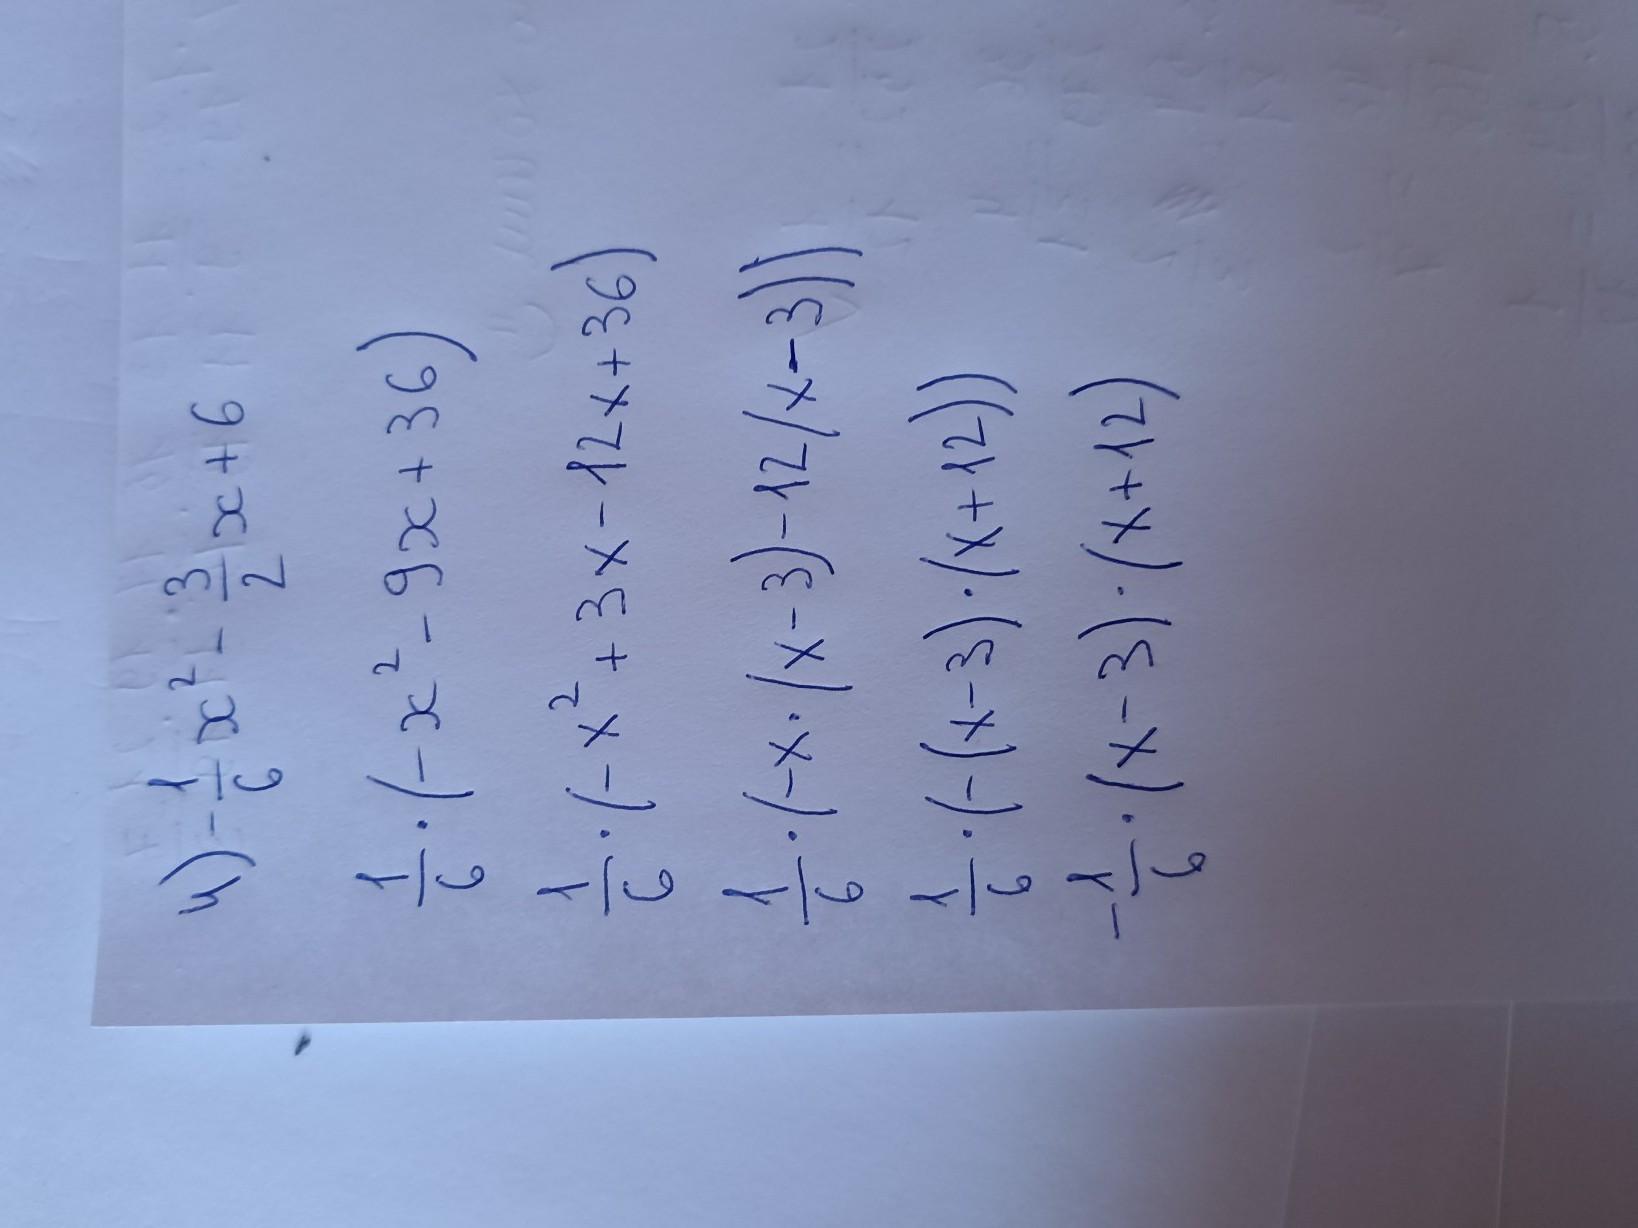 и) -1/6 x² - 3/2 x + 6
1/6 · (-x² - 9x + 36)
1/6 · (-x² + 3x - 12x + 36)
1/6 · (-x · (x - 3) - 12(x - 3))
1/6 · (-(x - 3) · (x + 12))
-1/6 · (x - 3) · (x + 12)